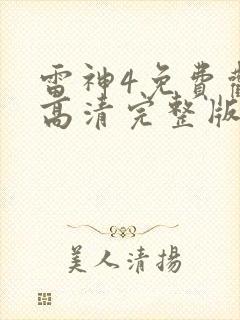 雷神4免費
高清完整版
美人清揚